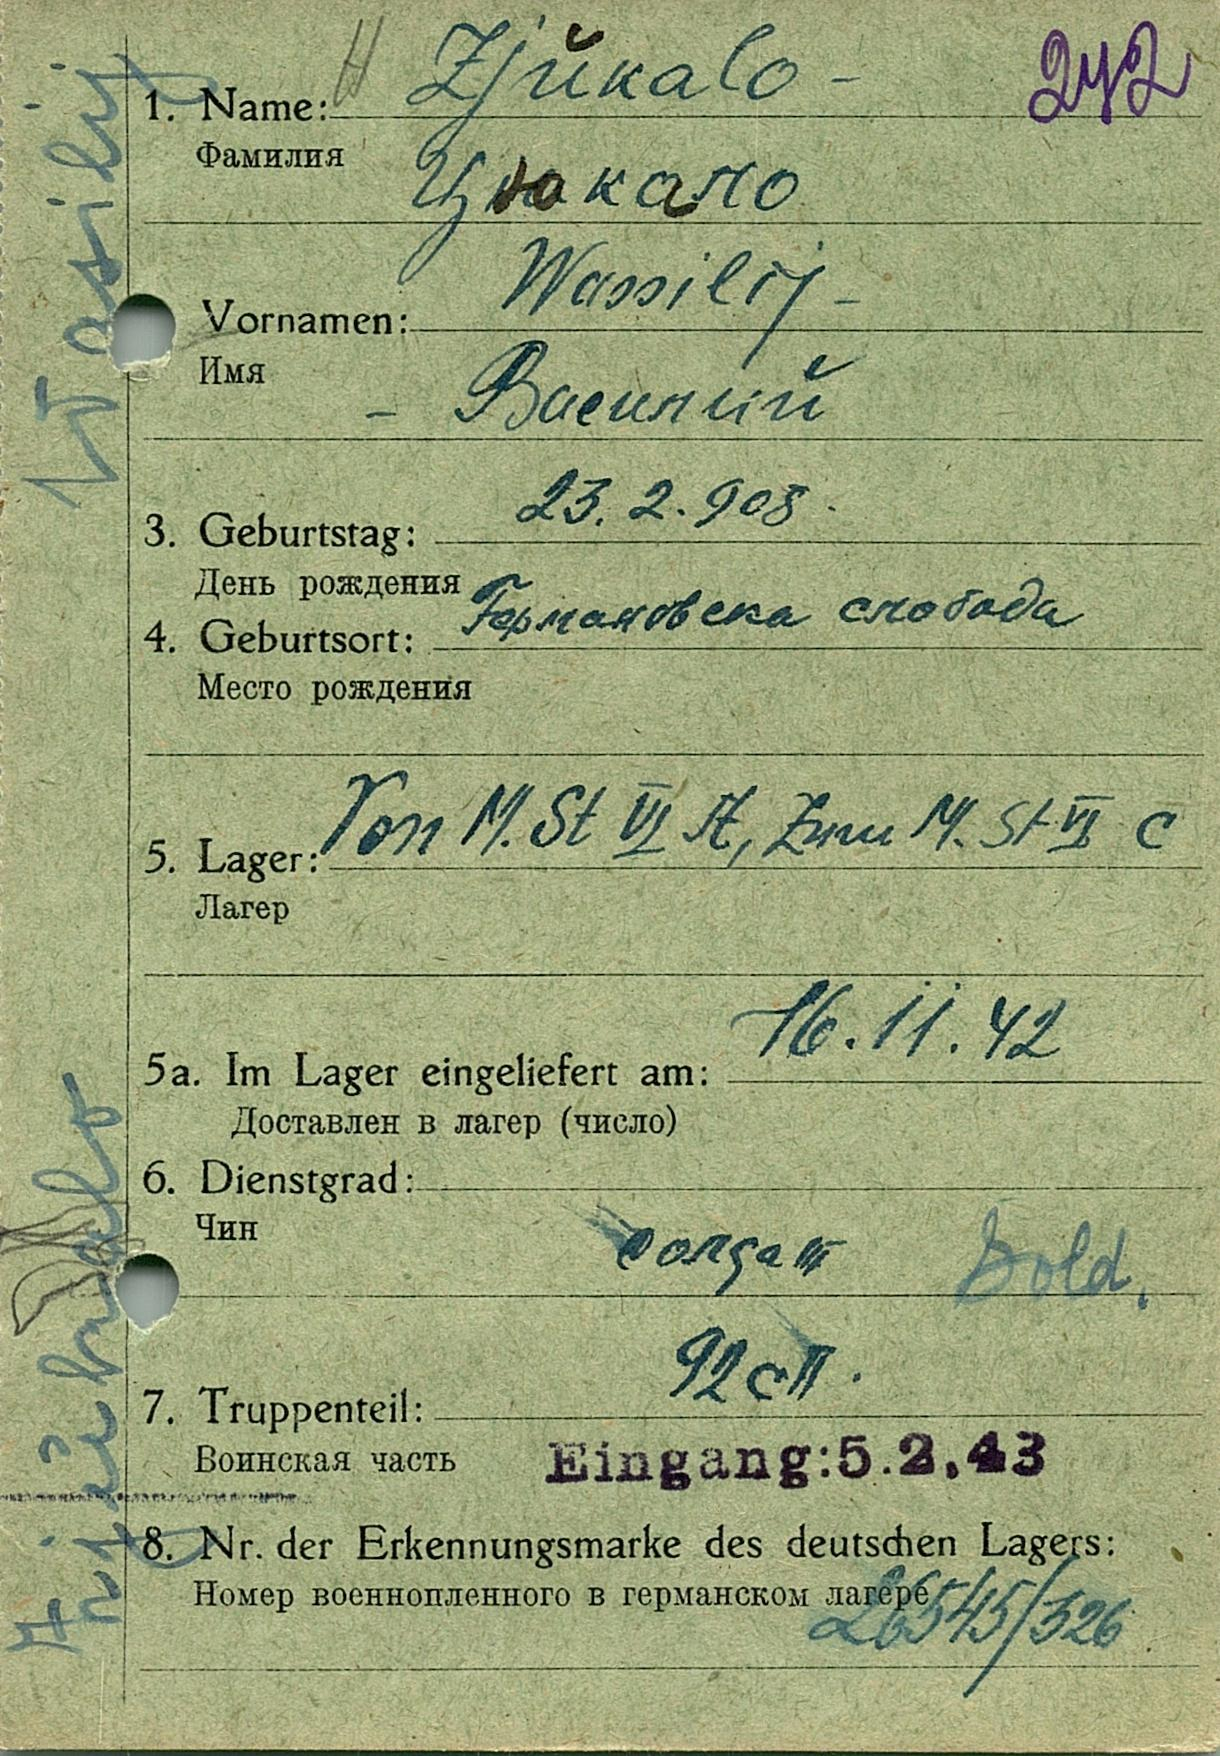 242
1. Name: Zjŭkalo -
Фамилия
Цюкало
Vornamen: Wassilij -
Имя
- Василий
3. Geburtstag: 23. 2. 908.
День рождения
4. Geburtsort: Германовска слобода
Место рождения
5. Lager: Von M. St VI A, Zum M. St VI C
Лагер
5a. Im Lager eingeliefert am: 16. 11. 42
Доставлен в лагер (число)
6. Dienstgrad:
Чин
солдат Sold.
7. Truppenteil: 92 сп.
Воинская часть
Eingang: 5.2.43
8. Nr. der Erkennungsmarke des deutschen Lagers:
Номер военнопленного в германском лагере
26545/326
Wasilij